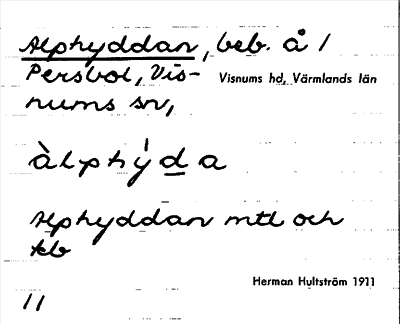 Alphyddan, beb. å /
Persbol, Vis- Visnums hd, Värmlands län
nums sn,
àlphýda
Alphyddan mtl och
kb
Herman Hultström 1911
11